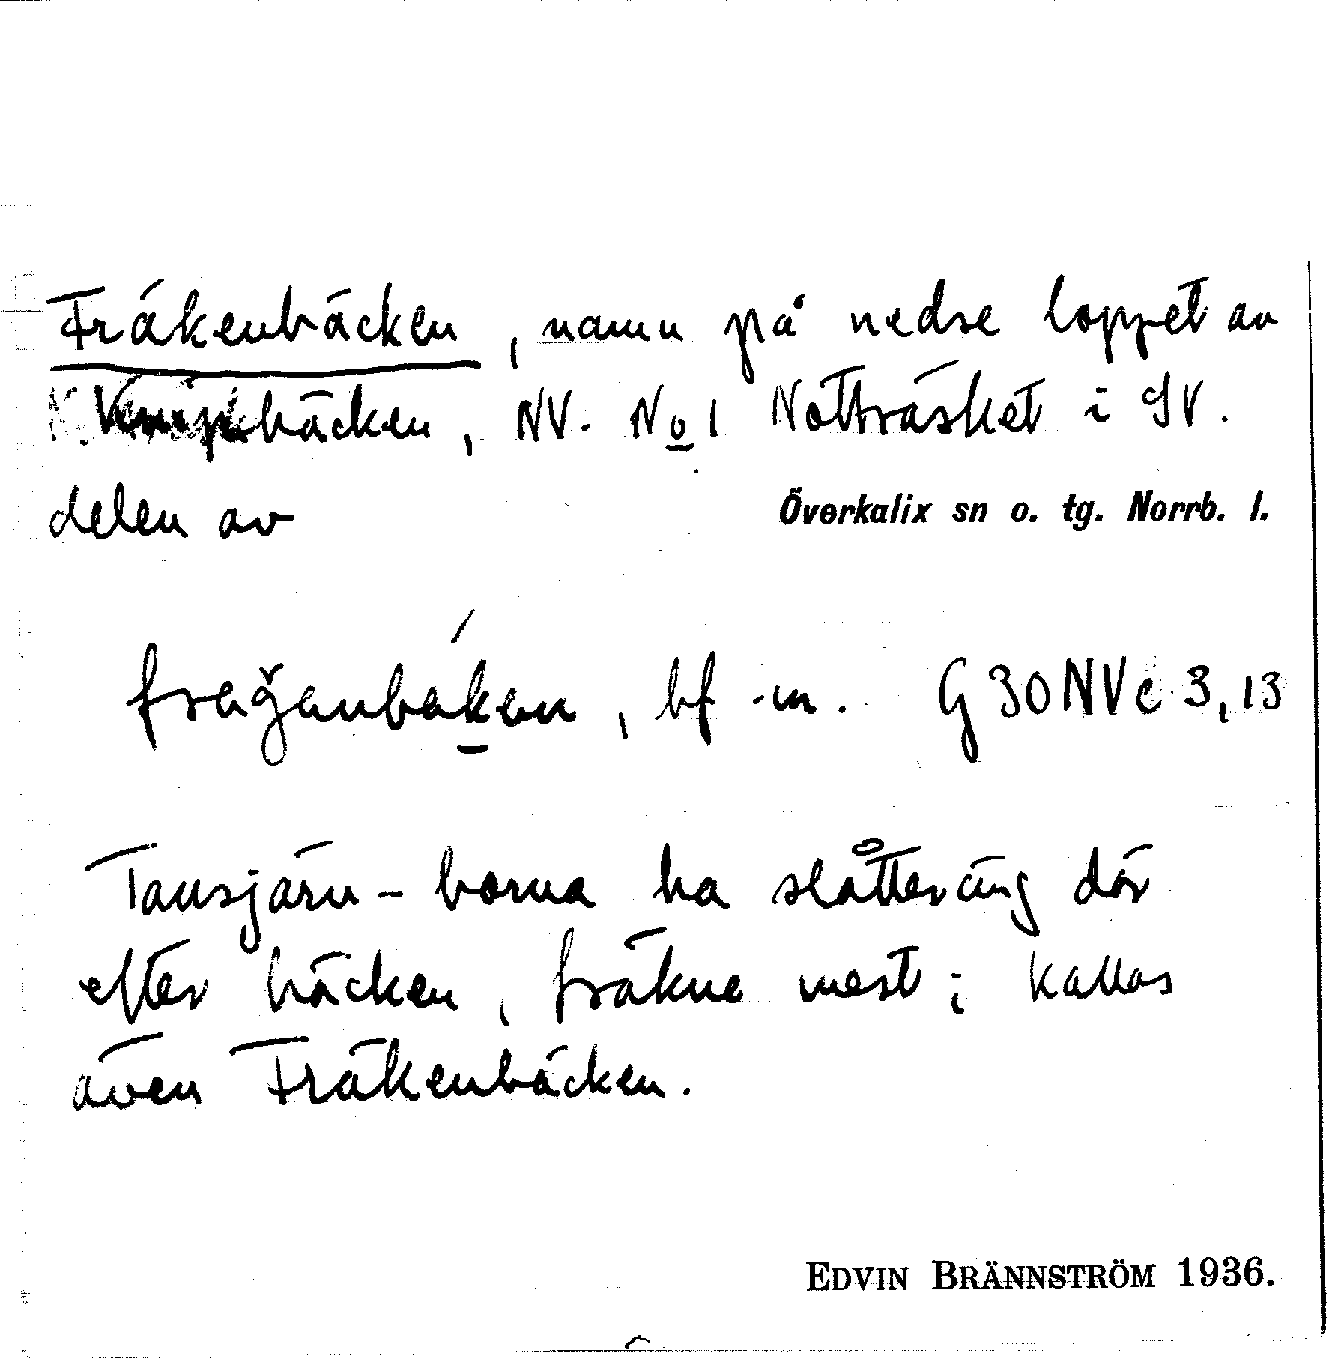 Fräkenbäcken, namn på nedre loppet av
bäcken, NV. No 1 Notträsket i SV.
delen av Överkalix sn o. tg. Norrb. l.
bf -m. G 30 NVc 3, 13
Tansjärn-borna ha slåtteräng där
efter bäcken, fräkne mest; kallas
även Fräkenbäcken.
EDVIN BRÄNNSTRÖM 1936.